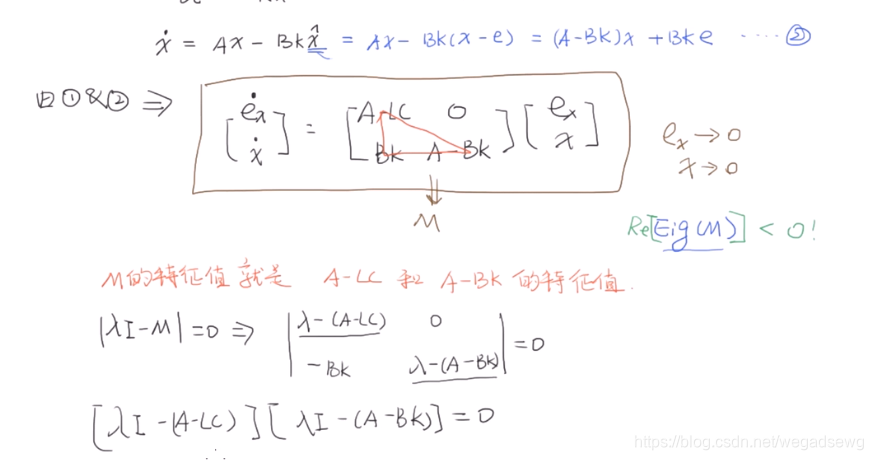 ẋ = Ax - Bkx̂ = Ax - Bk(x-e) = (A-Bk)x + Bke ····· ②
由①&② ⇒ [ėₓ ẋ] = [A-LC 0 Bk A-Bk] [eₓ x]
eₓ → 0
x → 0
⇓
M
Re[Eig(M)] < 0!
M的特征值就是 A-LC 和 A-Bk 的特征值.
|λI-M|=0 ⇒ |λ-(A-LC) 0 -Bk λ-(A-Bk)| = 0
[λI-(A-LC)][λI-(A-Bk)] = 0
https://blog.csdn.net/wegadsewg